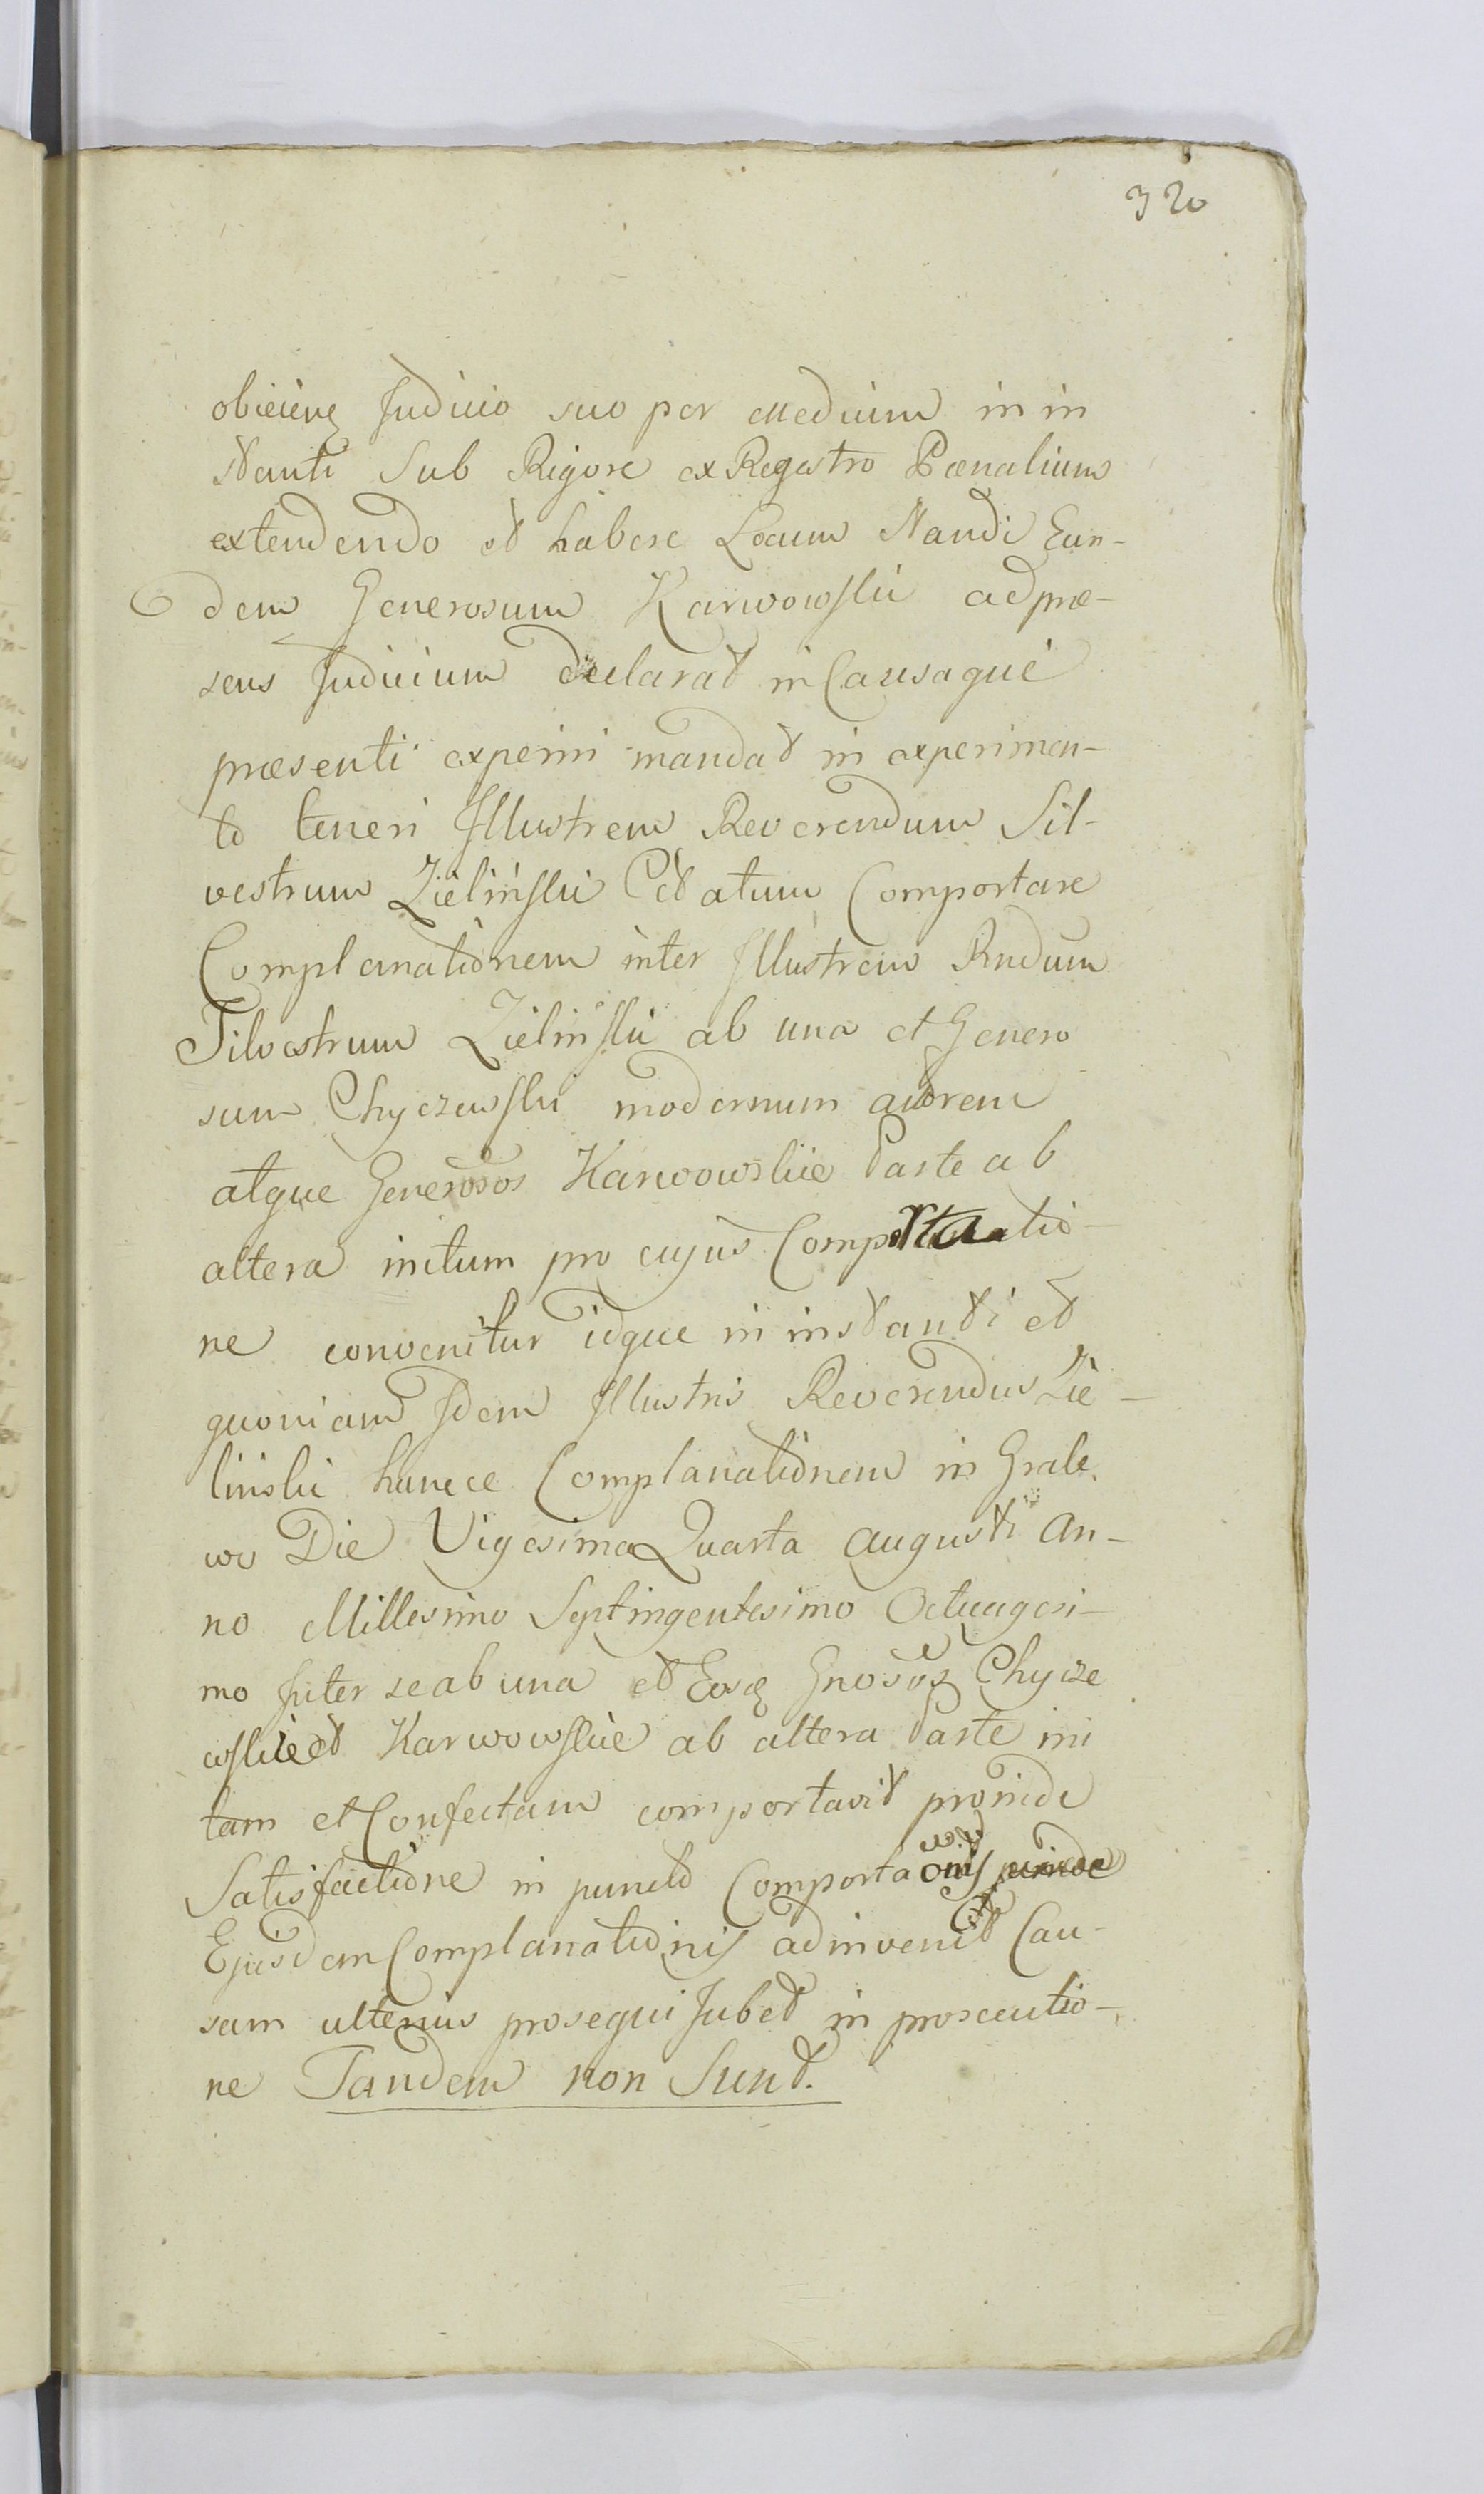 320
obicienẹ Judicio suo per Medium in in
stanti Sub Rigore ex Regestro Pœnalium
extendendo et habere Locum Standi Eun-
dem Generosum Karwowski ad præ-
sens Judicium declarat in Causaque
præsenti experiri mandat in experimen-
to teneri Illustrem Reverendum Sil-
vestrum Zieliński Citatum Comportare
Complanationem inter Illustrem Rndum
Silvestrum Zieliński ab una et Genero
sum Chyczewski modernum actorem
atque Generosos Karwowskie Parte ab
altera initum pro cujus Comportatio-
ne convenitur idque in instanti et
quoniam Idem Illustris Reverendus Zie-
linski hancce Complanationem in Grabo
wo Die Vigesima Quarta Augusti An-
no Millesimo Septingentesimo Octuagesi-
mo Inter se ab una et Eosq Gnosos Chycze
wskie et Karwowskie ab altera Parte ini
tam et Confectam comportavit proinde
Satisfactione in puncto Comportaonis
Ejusdem Complanationis adinvenit Cau-
sam ulterius prosequi Jubet in prosecutio-
ne Tandem non Sunt.